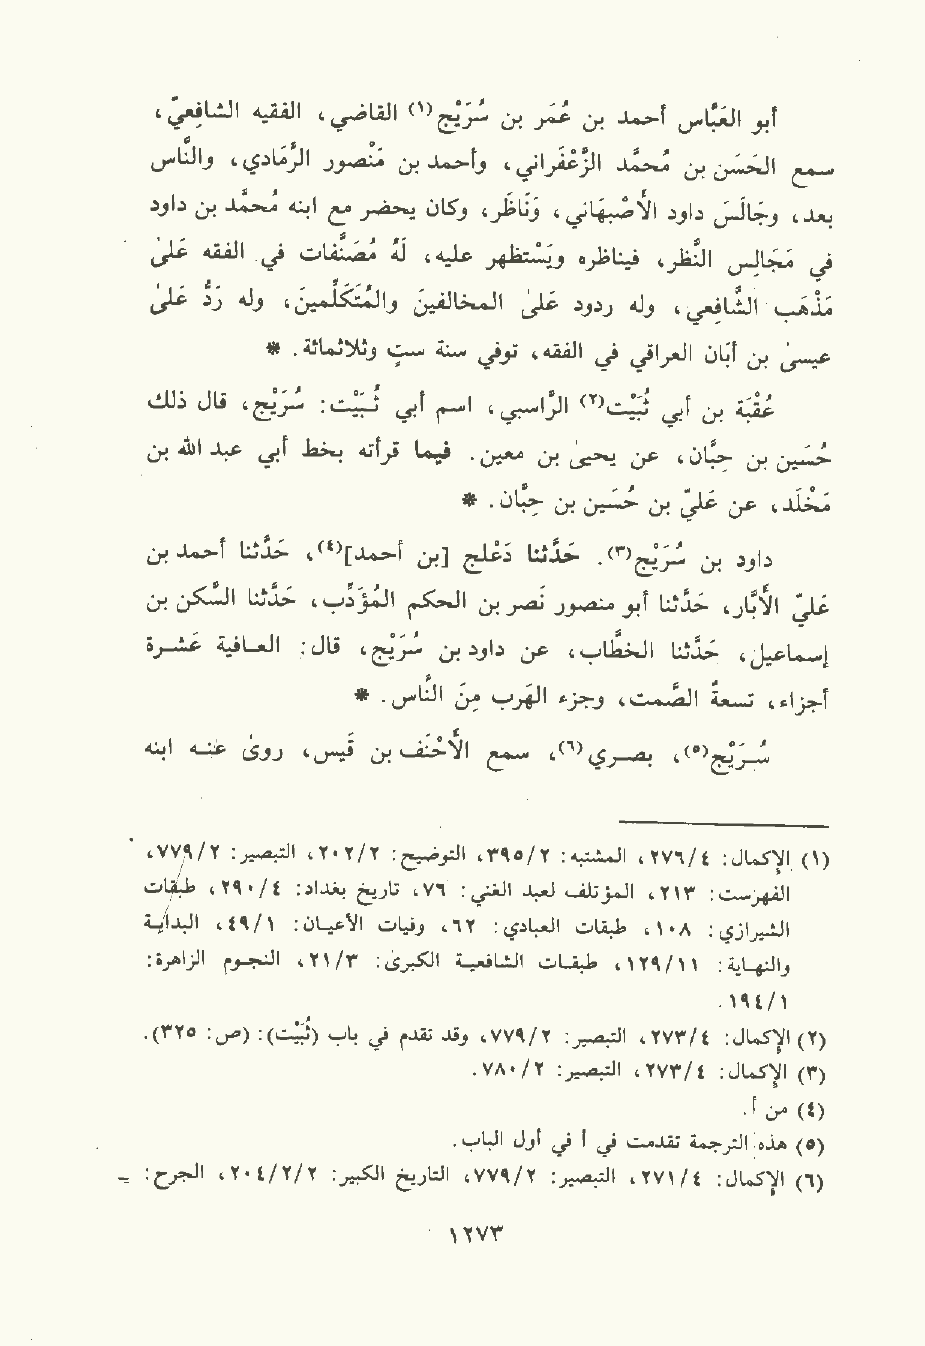 أبو العَبَّاس أحمد بن عُمَر بن سُرَيْج(١) القاضي، الفقيه الشافِعيّ،
سمع الحَسَن بن مُحمَّد الزَّعْفَراني، وأحمد بن مَنْصور الرَّمَادي، والنَّاس
بعد، وجَالَسَ داود الأصْبهَاني، ونَاظَر، وكان يحضر مع ابنه مُحمَّد بن داود
في مَجَالِس النَّظَر، فيناظره ويَسْتظهر عليه، لَهُ مُصَنَّفات في الفقه عَلَىٰ
مَذْهَب الشَّافِعي، وله ردود علىٰ المخالفينَ والمُتَكَلِّمينَ، وله رَدٌّ علىٰ
عيسىٰ بن أَبَان العراقي في الفقه، توفي سنة سِت وثلاثمائة. *
عُقْبَة بن أبي ثُبَيْت(٢) الرَّاسبي، اسم أبي ثُبَيْت: سُرَيْج، قال ذلك
حُسَين بن حِبَّان، عن يحيىٰ بن معين. فيما قرأته بخط أبي عبد الله بن
مَخْلَد، عن عليّ بن حُسَين بن حِبَّان. *
داود بن سُرَيْج(٣). حَدَّثنا دَعْلج [بن أحمد](٤)، حَدَّثنا أحمد بن
عليّ الأَبَّار، حَدَّثنا أبو منصور نَصر بن الحكم المُؤَدِّب، حَدَّثنا السَّكَن بن
إسماعيل، حَدَّثنا الخطَّاب، عن داود بن سُرَيْج، قال: العافية عَشرة
أجزاء، تسعةٌ الصَّمت، وجزء الهَرب مِنَ النَّاس. *
سُرَيْج(٥)، بصري(٦)، سمع الأَحْنَف بن قَيس، روىٰ عنه ابنه
(١) الإكمال: ٤/ ٢٧٦، المشتبه: ٢/ ٣٩٥، التوضيح: ٢/ ٢٠٢، التبصير: ٢/ ٧٧٩،
الفهرست: ٢١٣، المؤتلف لعبد الغني: ٧٦، تاريخ بغداد: ٤/ ٢٩٠، طبقات
الشيرازي: ١٠٨، طبقات العبادي: ٦٢، وفيات الأعيان: ١/ ٤٩، البداية
والنهاية: ١١/ ١٢٩، طبقات الشافعية الكبرىٰ: ٣/ ٢١، النجوم الزاهرة:
١/ ١٩٤.
(٢) الإكمال: ٤/ ٢٧٣، التبصير: ٢/ ٧٧٩، وقد تقدم في باب (ثُبَيْت): (ص: ٣٢٥).
(٣) الإكمال: ٤/ ٢٧٣، التبصير: ٢/ ٧٨٠.
(٤) من أ.
(٥) هذه الترجمة تقدمت في أ في أول الباب.
(٦) الإكمال: ٤/ ٢٧١، التبصير: ٢/ ٧٧٩، التاريخ الكبير: ٢/ ٢/ ٢٠٤، الجرح: _
١٢٧٣